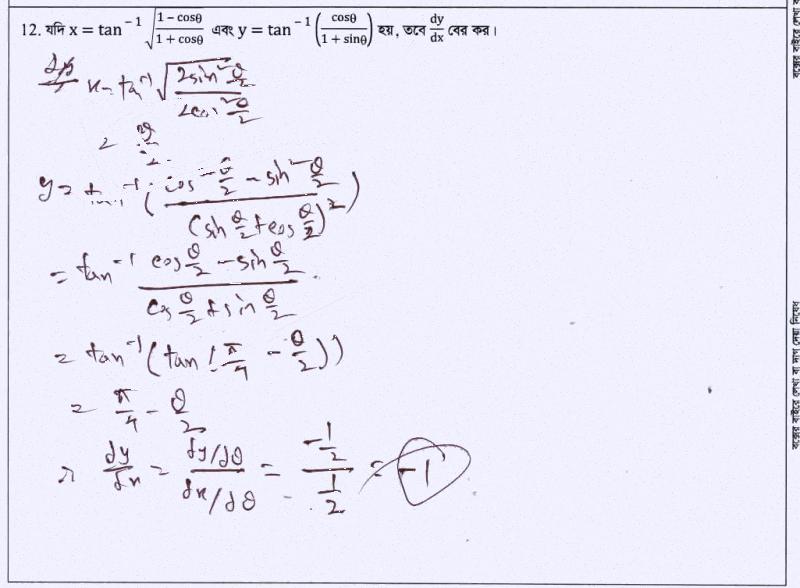 12. যদি x = tan⁻¹ √((1 − cosθ)/(1 + cosθ)) এবং y = tan⁻¹ (cosθ/(1 + sinθ)) হয়, তবে dy/dx বের কর।
x = tan⁻¹ √(2sin² θ/2 / 2cos² θ/2)
= θ/2
y = tan⁻¹ ((cos² θ/2 − sin² θ/2) / (sin θ/2 + cos θ/2)²)
= tan⁻¹ (cos θ/2 − sin θ/2) / (cos θ/2 + sin θ/2)
= tan⁻¹ (tan (π/4 − θ/2))
= π/4 − θ/2
∴ dy/dx = (dy/dθ)/(dx/dθ) = (−1/2)/(1/2) = −1
বক্সের বাইরে লেখা বা দাগ দেয়া নিষেধ
বক্সের বাইরে লেখা ব